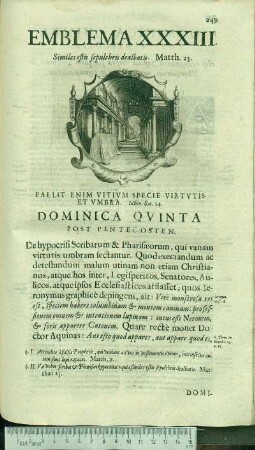 249
EMBLEMA XXXIII.
Similes estis sepulchris dealbatis. Matth. 23.
FALLIT ENIM VITIVM SPECIE VIRTVTIS
ET VMBRA. Iuven. Sat. 14.
DOMINICA QVINTA
POST PENTECOSTEN.
De hypocrisi Scribarum & Pharisæorum, qui vanam
virtutis umbram sectantur. Quod execrandum ac
detestandum malum utinam non etiam Christia-
nos, atque hos inter, Legisperitos, Senatores, Au-
licos, atque ipsos Ecclesiasticos afflasset, quos Ie-
ronymus graphicè depingens, ait: Verè monstrosa res
est, speciem habere columbinam & mentem caninam: profes-
sionem ovinam & intentionem lupinam: intus esse Neronem,
& foris apparere Catonem. Quare rectè monet Do-
ctor Aquinas: Aut esto quod appares, aut appare quod es.
§. I. Attendite à falsis Prophetis, qui veniunt ad vos in vestimentis ovium, intrinsecus au-
tem sunt lupi rapaces. Matth. 7.
§. II. Væ vobis Scribæ & Pharisæi hypocritæ: quia similes estis sepulchris dealbatis. Mat-
thæi 23.
DOMI-